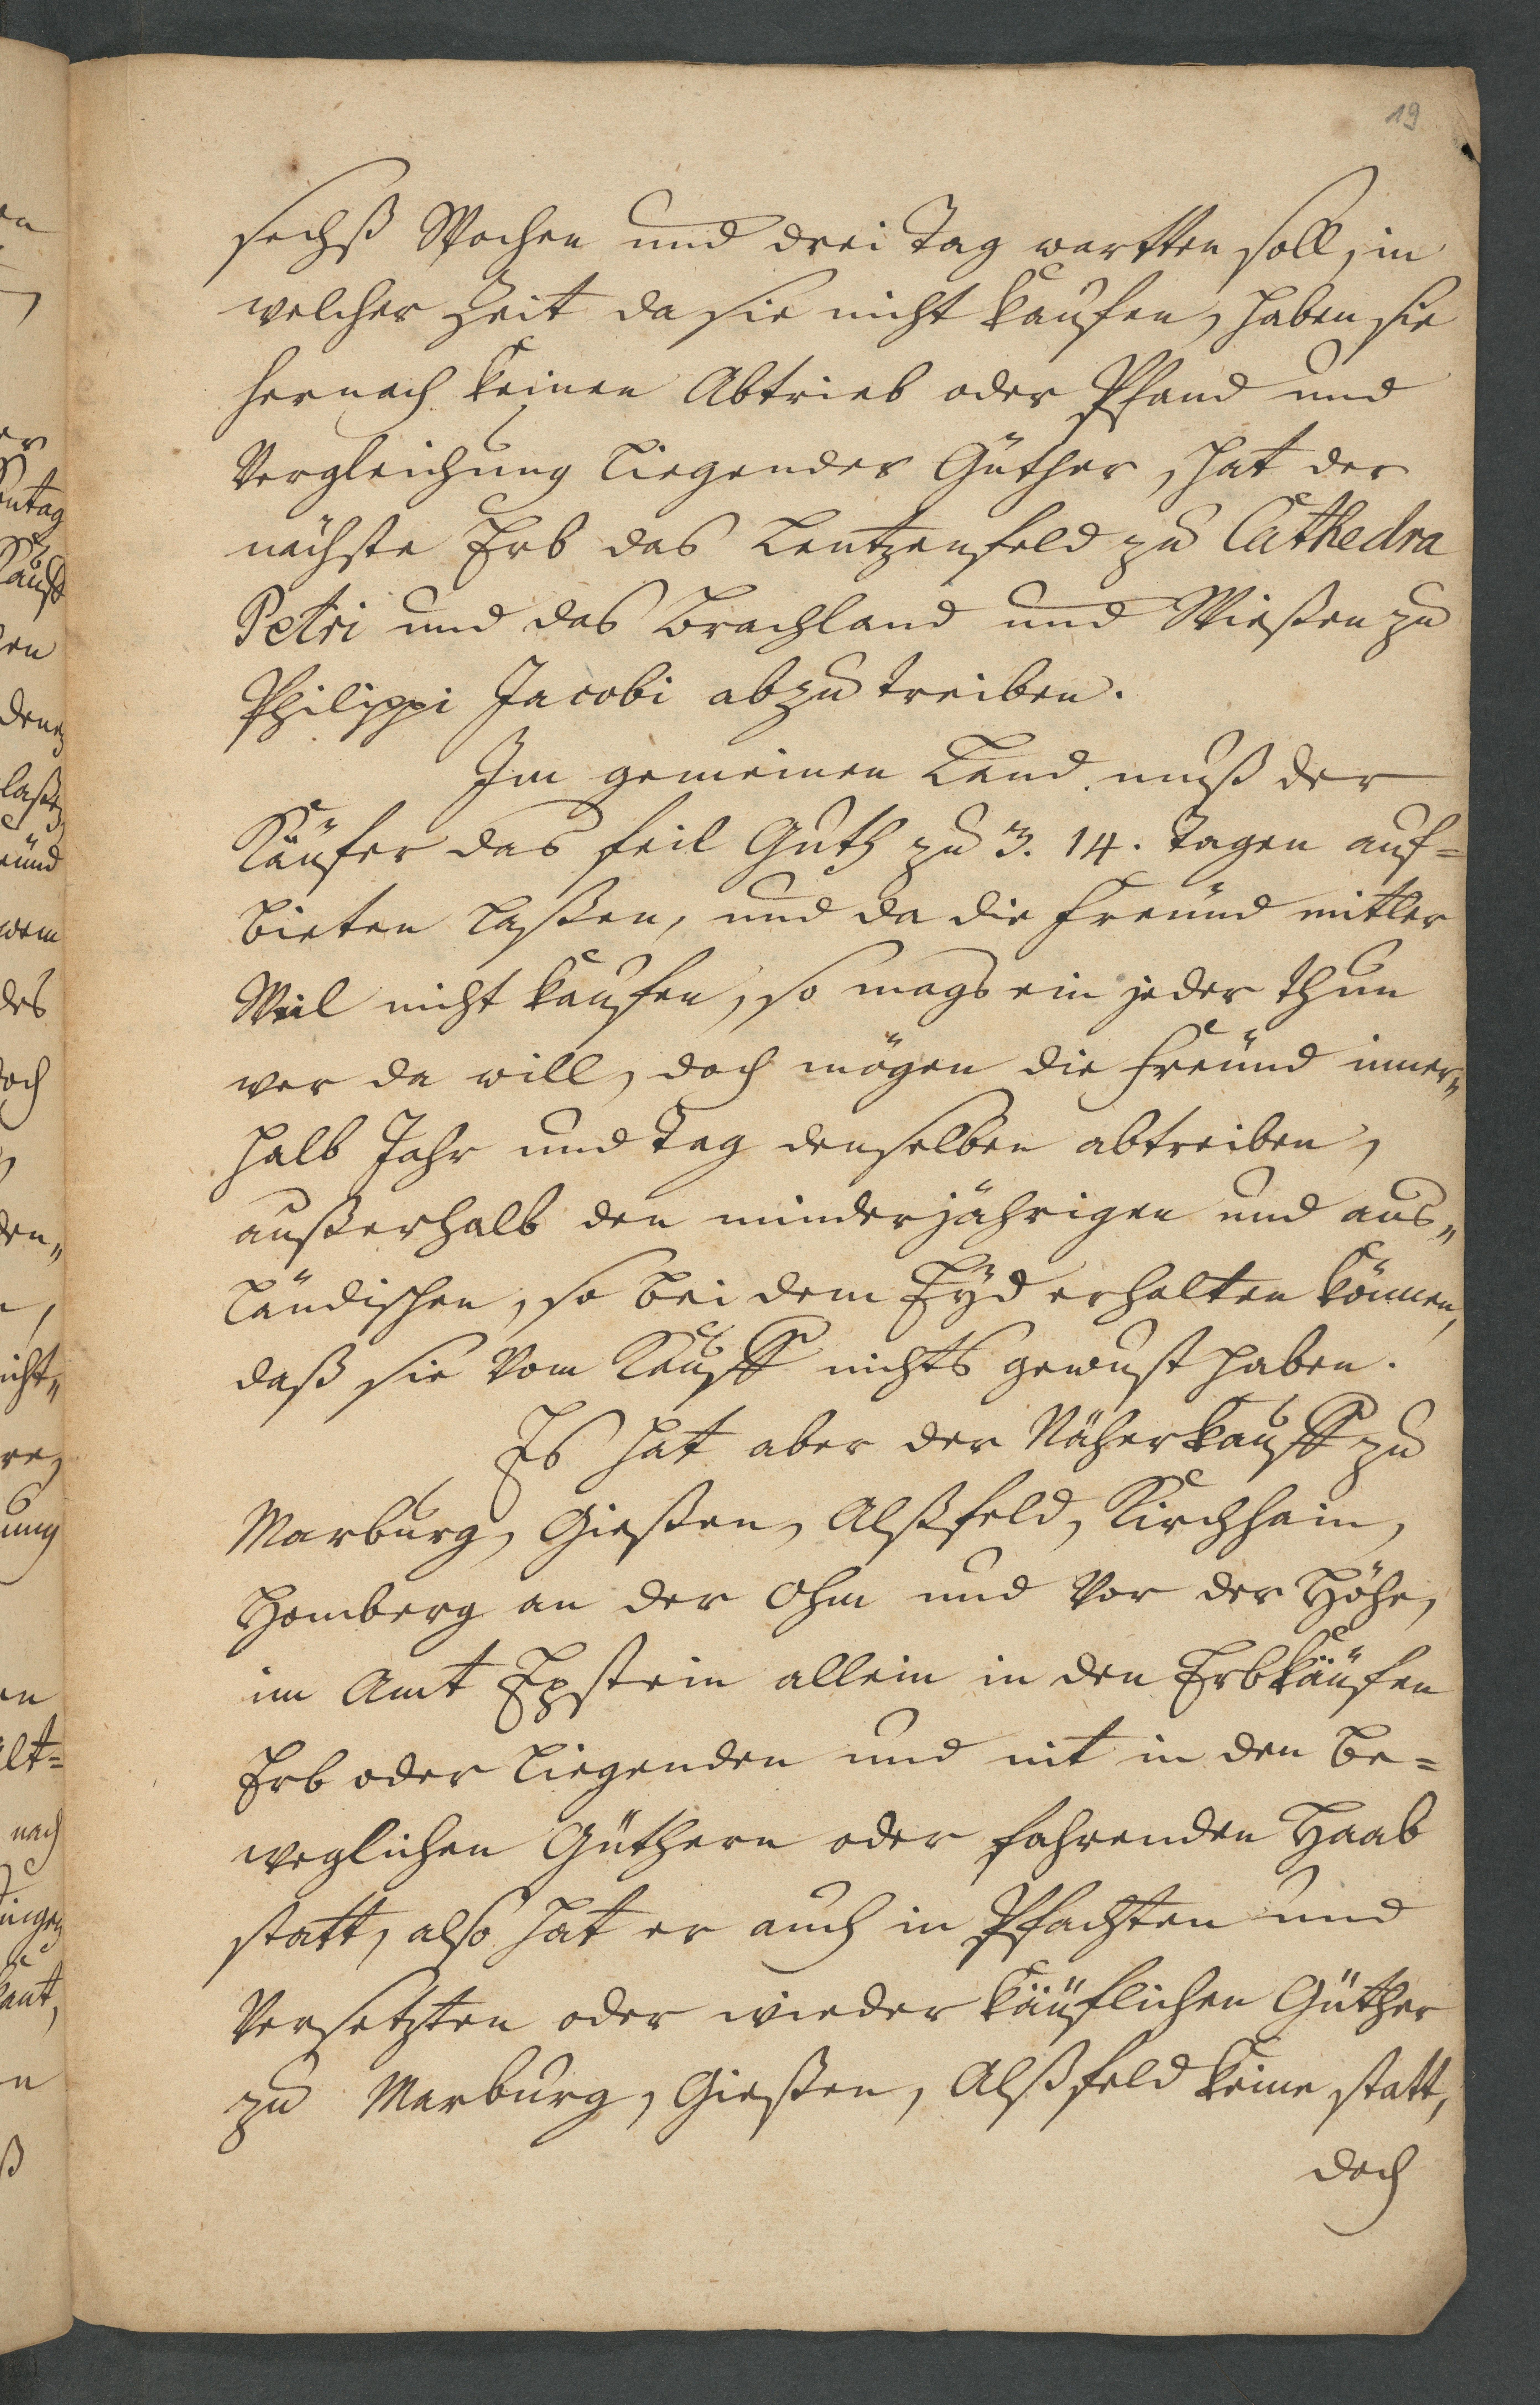 19
sechß Wochen und drei Tag wartten soll, in
welcher Zeit da sie nicht kaufen, haben sie
hernach keinen Abtrieb oder Pfand und
Vergleichung liegender Güther, hat der
nächste Erb das Lentzenfeld zu Cathedra
Petri und das Brachland und Wießen zu
Philippi Jacobi abzutreiben.
Im gemeinen Land muß der
Käufer das feil Guth zu 3. 14. Tagen auf=
bieten laßen, und da die Freünd mitler
Weil nicht kaufen, so mags ein jeder thun
wer da will, doch mögen die Freünd inner„
halb Jahr und Tag denselben abtreiben,
außerhalb den minderjährigen und aus„
ländischen, so bei dem Eyd erhalten können,
daß sie vom Kauff nichts gewust haben.
Es hat aber der Näherkauff zu
Marburg, Gießen, Alßfeld, Kirchhain,
Homberg an der Ohm und vor der Höhe,
im Amt Epstein allein in den Erbkäufen
Erb oder liegenden und nit in den be=
weglichen Güthern oder fahrenden Haab
statt, also hat er auch in Pfachten und
Versetzten oder wieder käuflichen Güther
zu Marburg, Gießen, Alßfeld keine statt,
doch